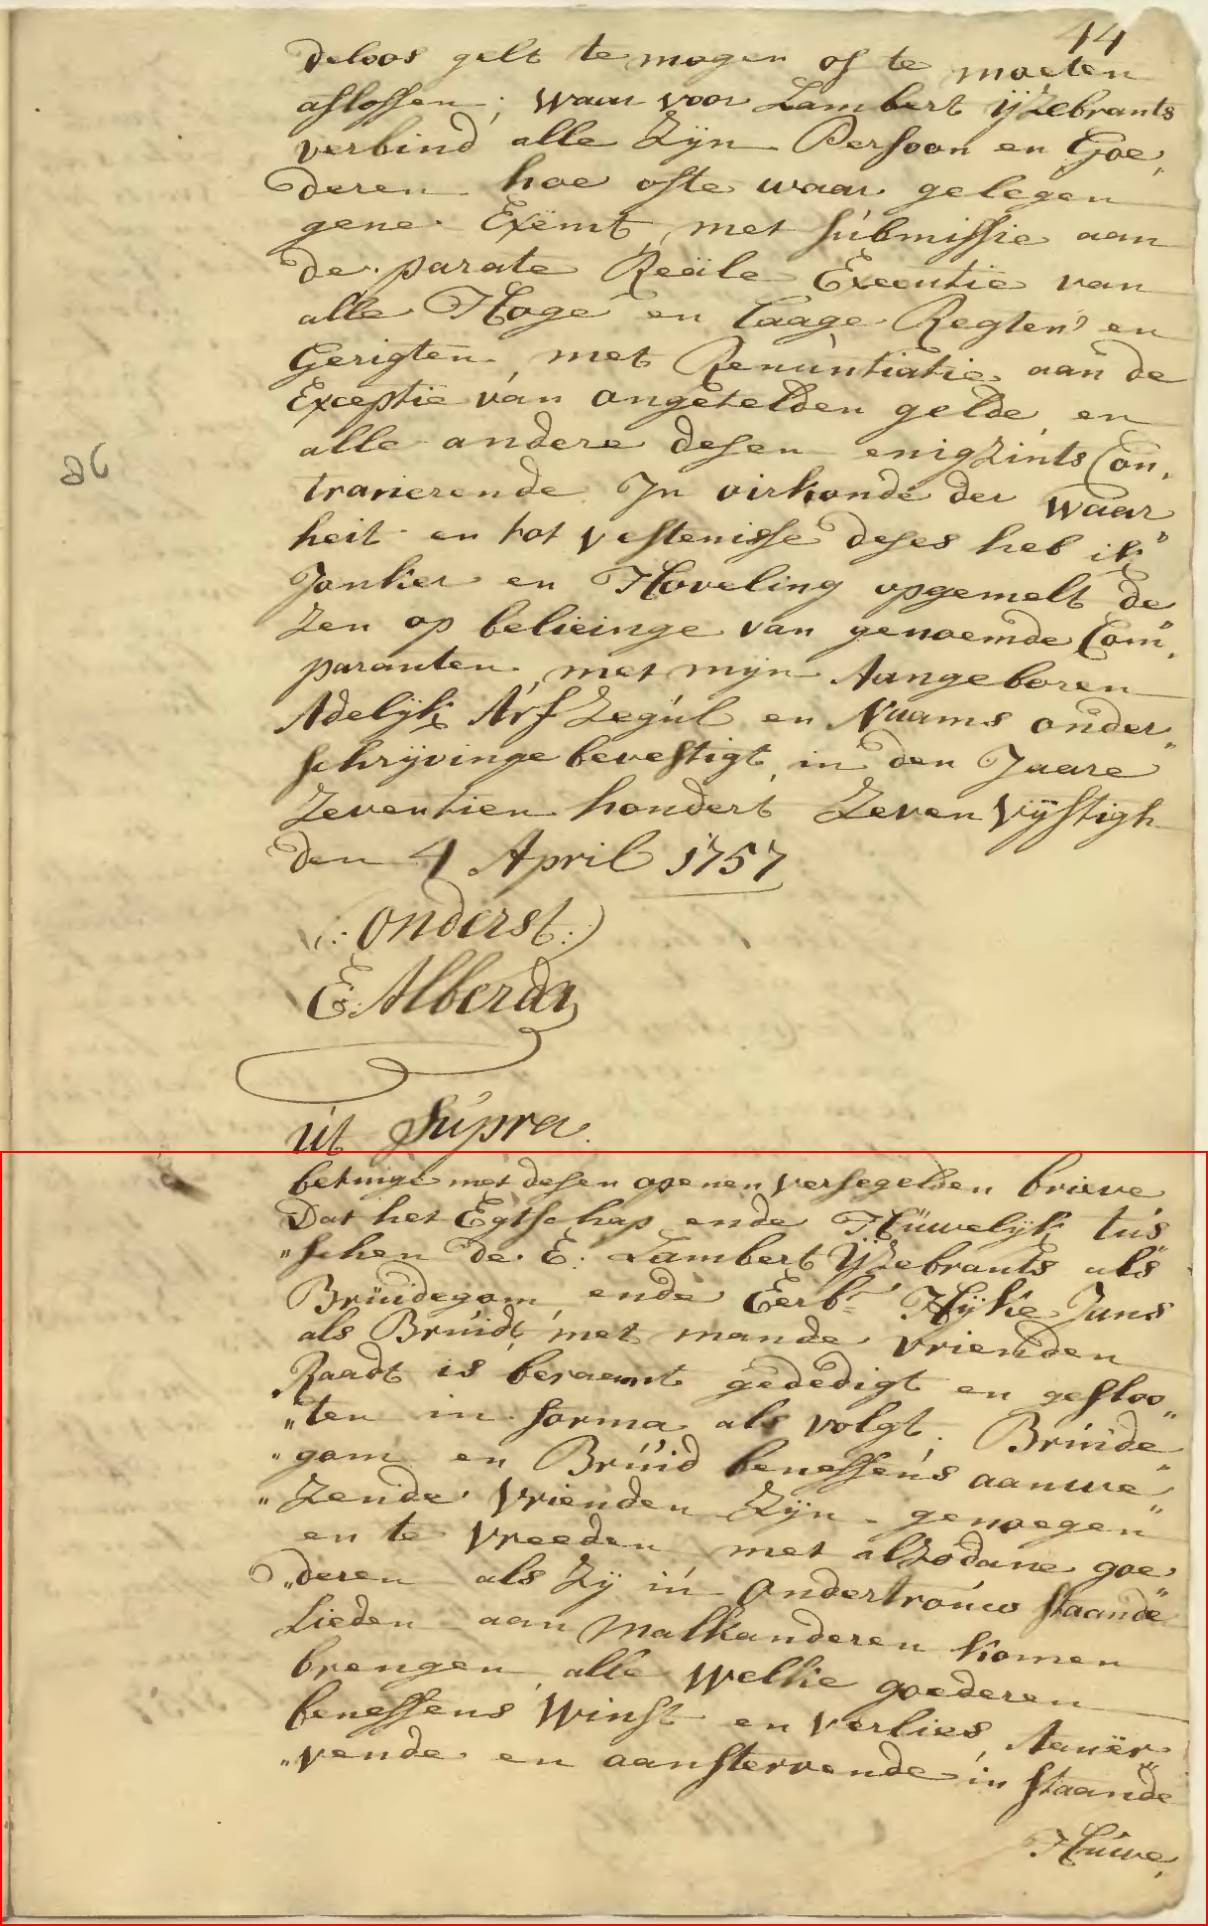 44
deloos gelt te mogen of te moeten
aflossen; waar voor Lambert ijzebrants
verbind alle Zijn Persoon en Goe„
deren hoe ofte waar gelegen
gene Exemt, met submissie aan
de parate Reële Executie van
alle Hoge en Laage Regten en
Gerigten, met Renuntiatie aan de
Exceptie van ongetelden gelde, en
alle andere desen enigzints Con„
trarierende. In oirkonde der waar
heit en tot vestenisse deses heb ik
Jonker en Hoveling opgemelt de
zen op belieinge van genoemde Com„
paranten, met mijn Aangeboren
Adelijk Arf Zegul en Naams onder„
schrijvinge bevestigt, in den Jaare
Zeventien hondert Zeven vijftigh
den 4 April 1757
(: onderst:)
E. Alberda
ut Supra
betuige met desen openen versegelden brieve
Dat het Egtschap ende Huwelijk tus
„schen de E: Lambert IJzebrants als
Bruidegom, ende Eerb: Hijke Jans
als Bruidt, met mande vrienden
Raadt is beraemt gededigt en gesloo„
„ten in forma als volgt. Bruide„
„gom en Bruid beneffens aanwe„
„Zende vrienden Zijn genoegen
en te vreeden met alzodane goe
„deren als Zij in ondertrouw staande
Lieden aan malkanderen komen
brengen, alle welke goederen
beneffens Winst en verlies, Aanër„
„vende en aanstervende in staande
Huwe„
26